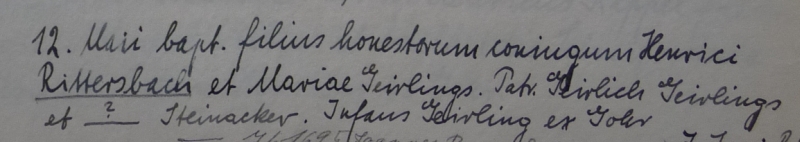 12. Maii bapt. filius honestorum coniugum Henrici
Rittersbach et Mariae Geirlings. Patr. Geirlich Geirlings
et ? Steinacker. Infans Geirling ex Gohr